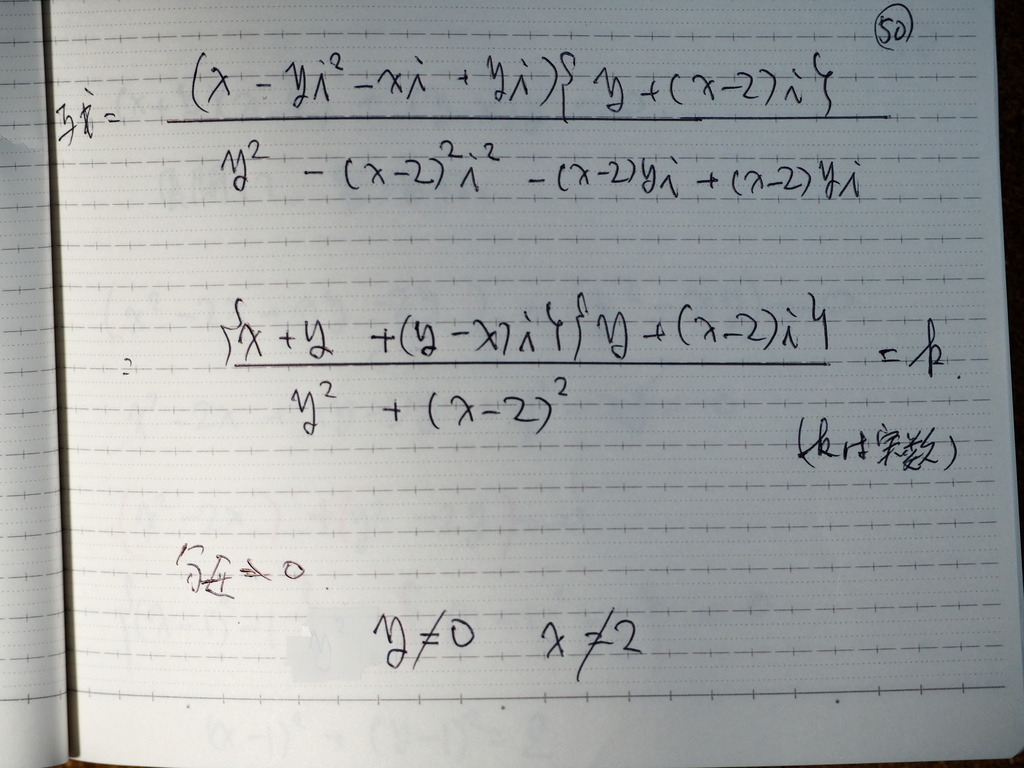 50
与式 = (x - yi² - xi + yi){y + (x-2)i} / y² - (x-2)²i² - (x-2)yi + (x-2)yi
= {x + y + (y - x)i}{y + (x-2)i} / y² + (x-2)² = k.
(kは実数)
y ≠ 0 x ≠ 2